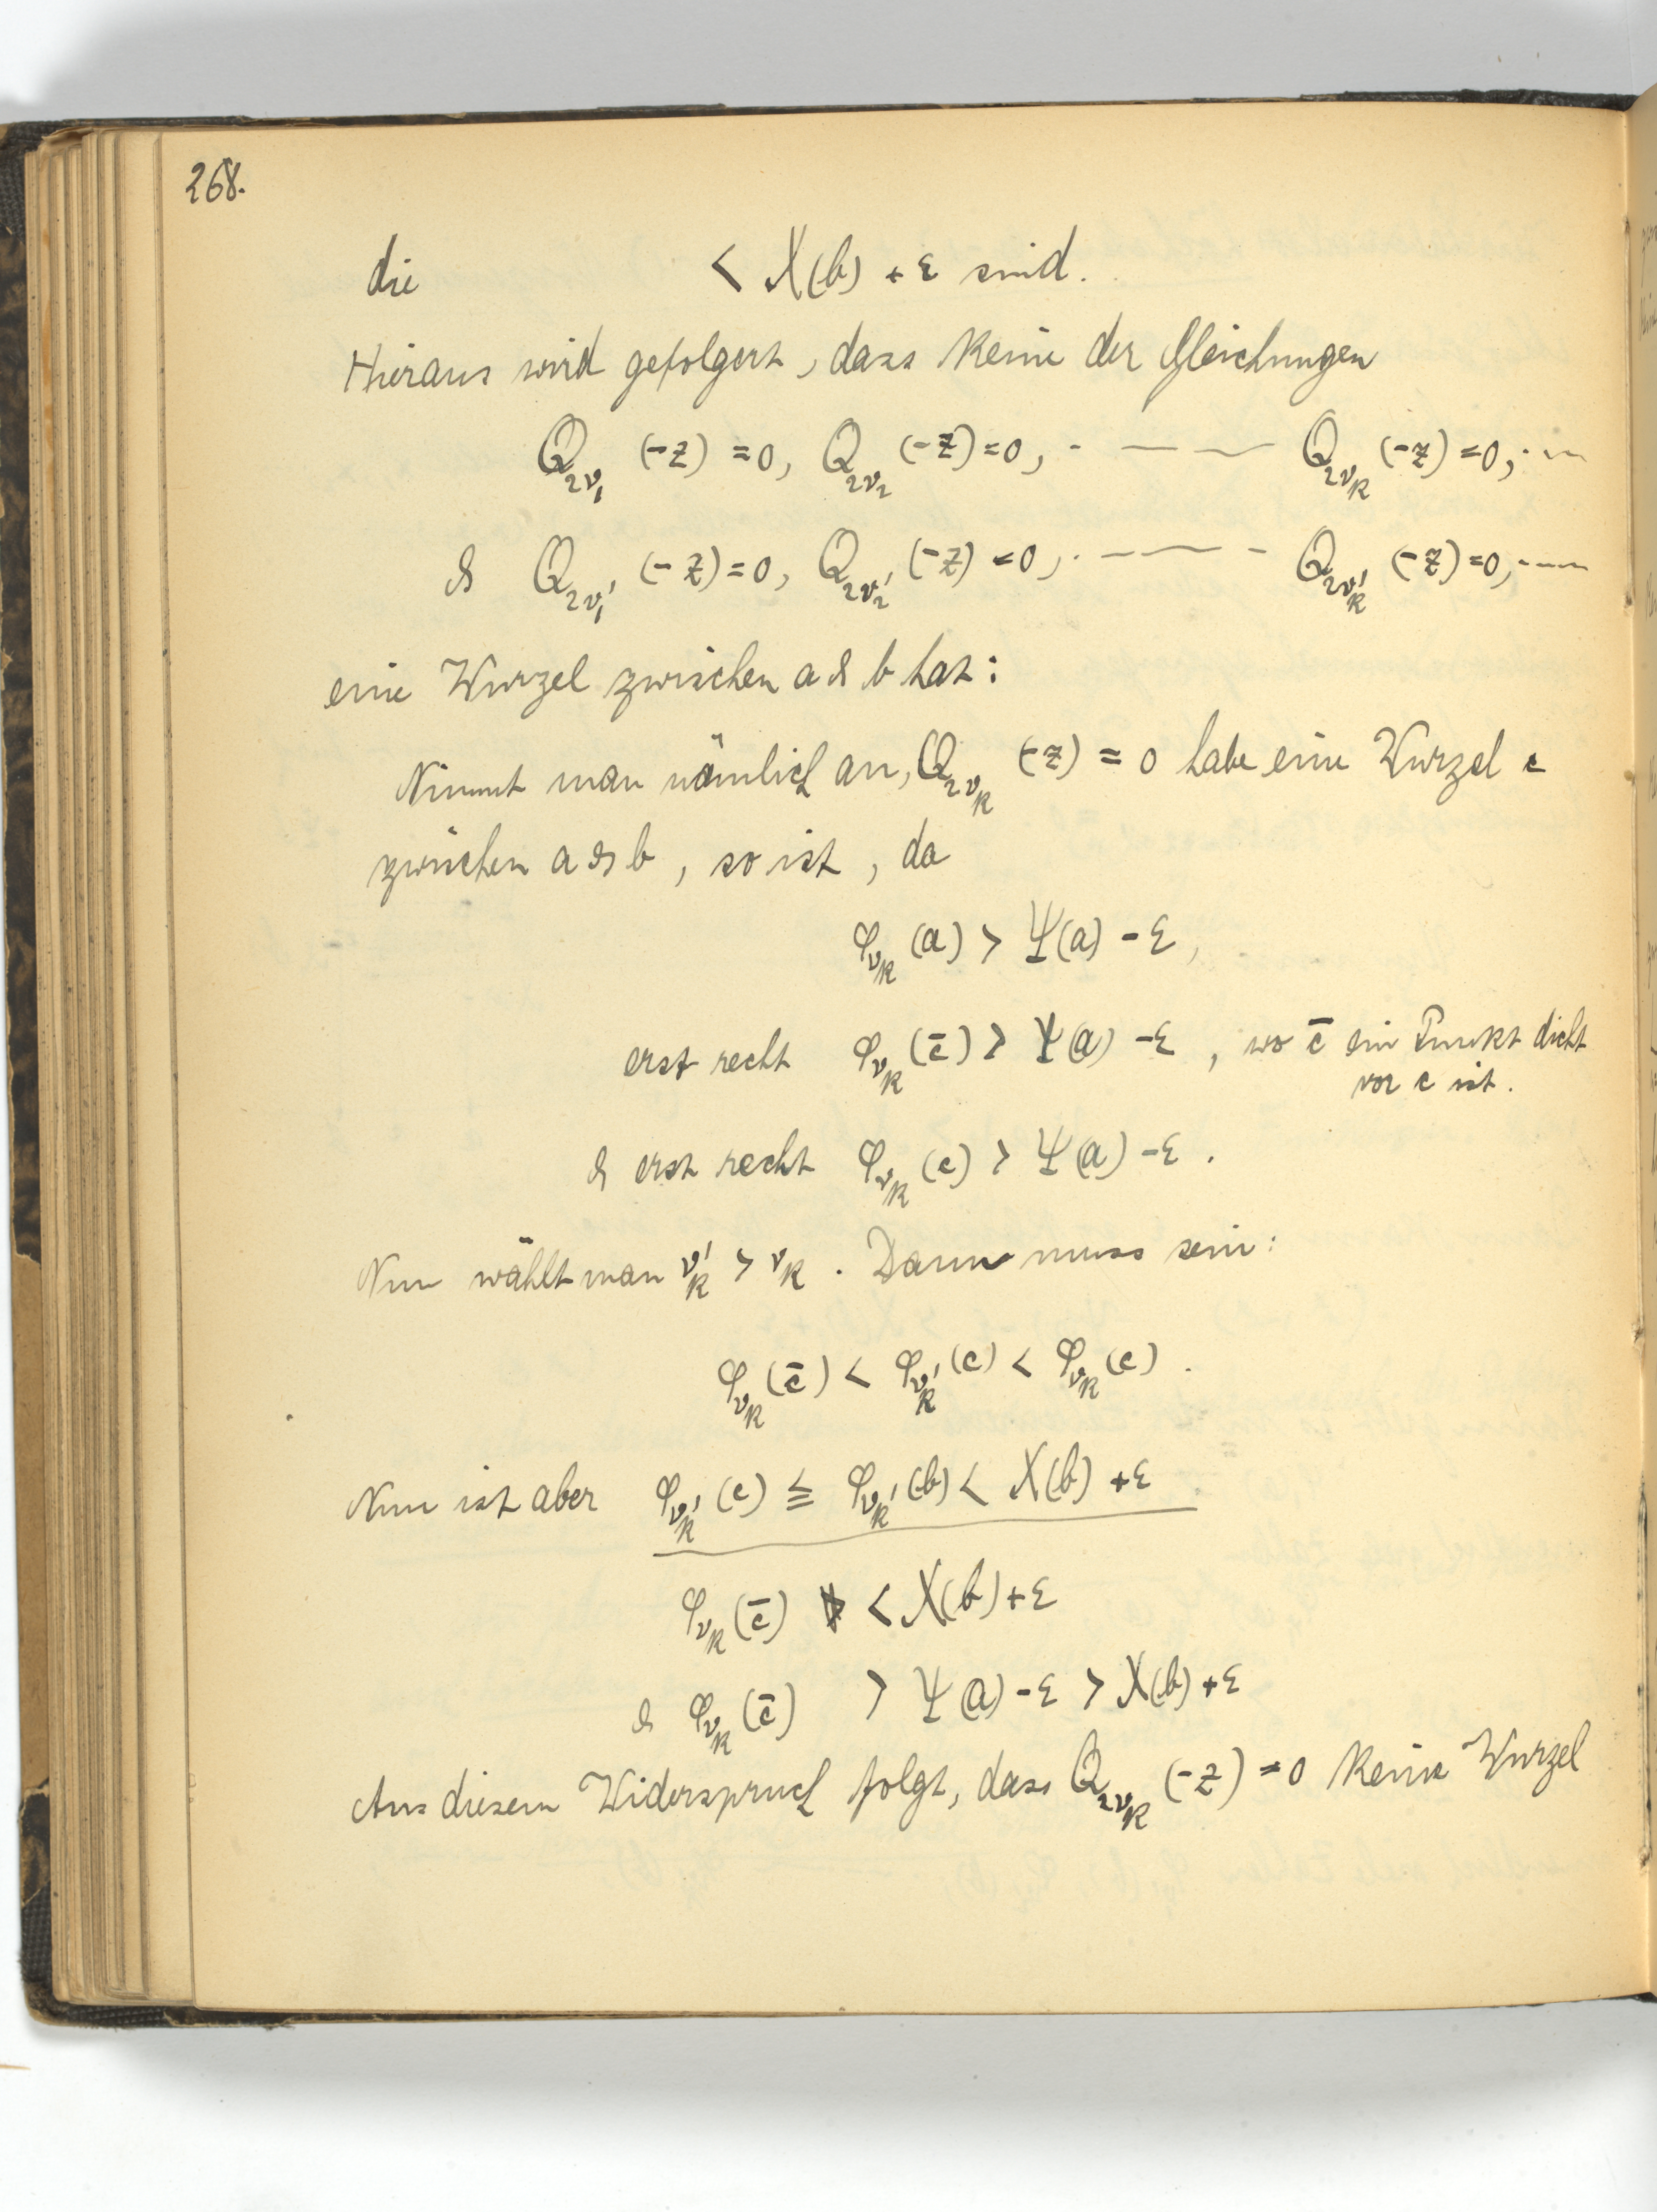 268.
die < X(b) + ε sind.
Hieraus wird gefolgert, dass keine der Gleichungen
Q_{2ν_1} (-z) = 0, Q_{2ν_2} (-z) = 0, · — — — Q_{2ν_k} (-z) = 0, · —
& Q_{2ν_1'} (-z) = 0, Q_{2ν_2'} (-z) = 0, · — — — Q_{2ν_k'} (-z) = 0, · — —
eine Wurzel zwischen a & b hat:
Nimmt man nämlich an, Q_{2ν_k} (-z) = 0 habe eine Wurzel c
zwischen a & b, so ist, da
φ_{ν_k} (a) > Ψ(a) - ε,
erst recht φ_{ν_k} (c̄) > Ψ(a) - ε, wo c̄ ein Punkt dicht
vor c ist.
& erst recht φ_{ν_k} (c) > Ψ(a) - ε.
Nun wählt man ν_k' > ν_k. Dann muss sein:
φ_{ν_k} (c̄) < φ_{ν_k'} (c) < φ_{ν_k} (c).
Nun ist aber φ_{ν_k'} (c) ≦ φ_{ν_k'} (b) < X(b) + ε
φ_{ν_k} (c̄) < X(b) + ε
& φ_{ν_k} (c̄) > Ψ(a) - ε > X(b) + ε
Aus diesem Widerspruch folgt, dass Q_{2ν_k} (-z) = 0 keine Wurzel